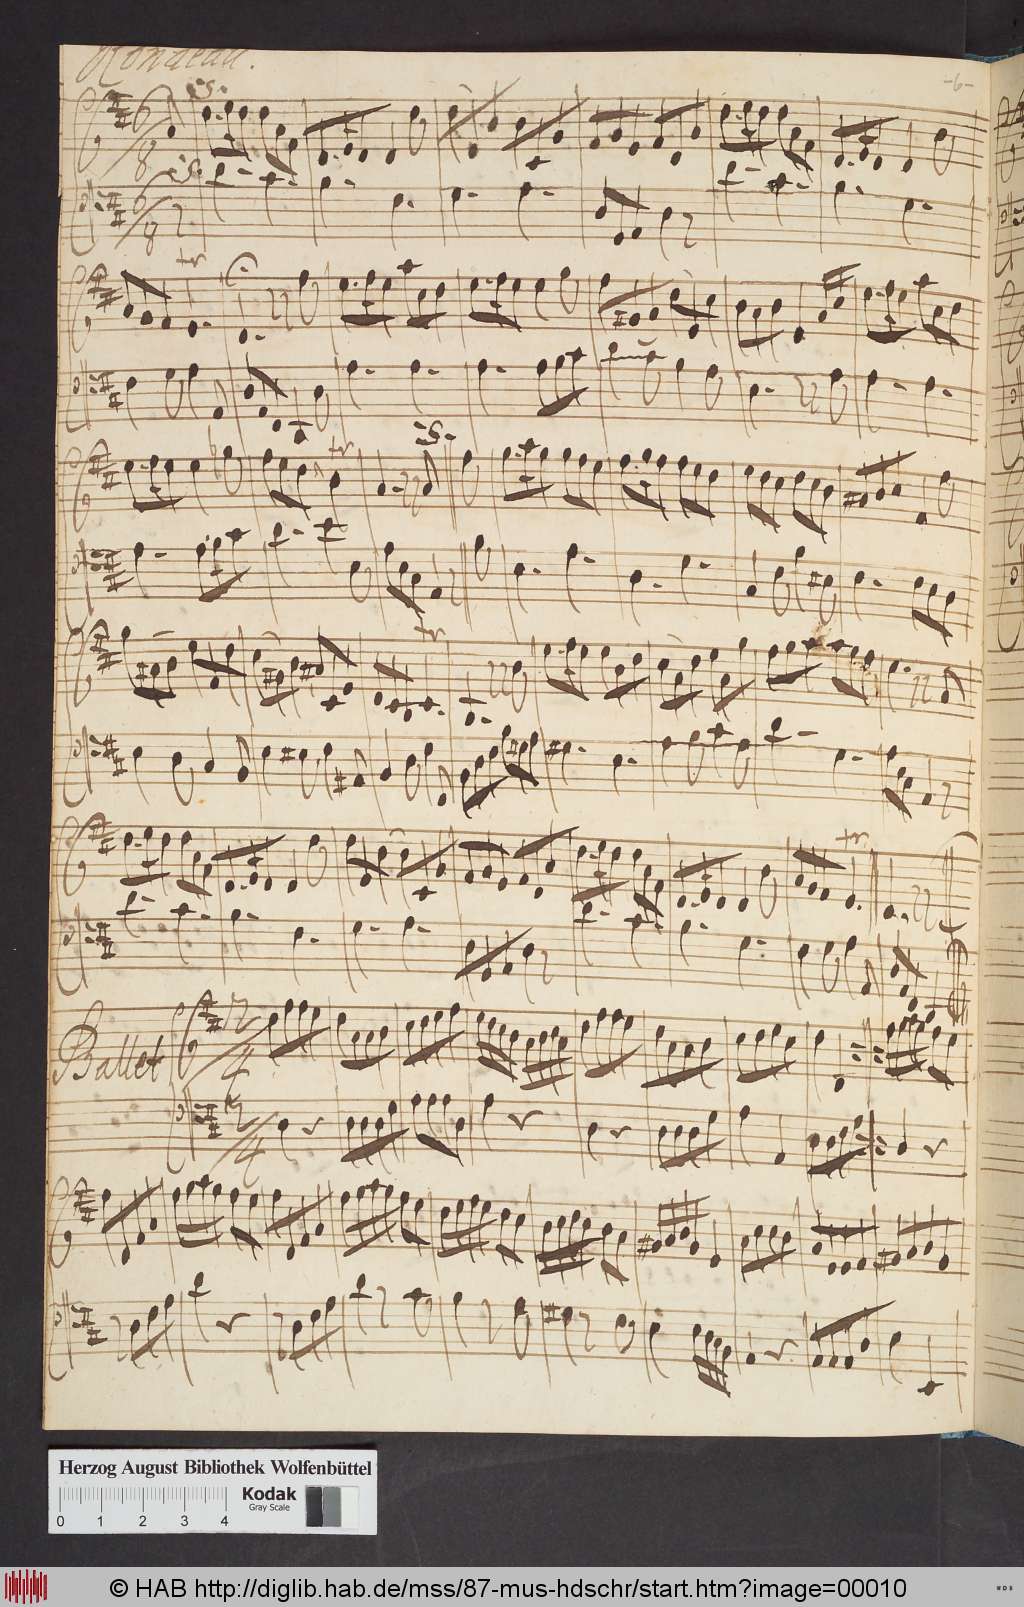 Rondeau.
-6-
6
8
6
8
tr
tr
tr
tr
Ballet
2
4
2
4
Herzog August Bibliothek Wolfenbüttel
Kodak
Gray Scale
0 1 2 3 4
© HAB http://diglib.hab.de/mss/87-mus-hdschr/start.htm?image=00010